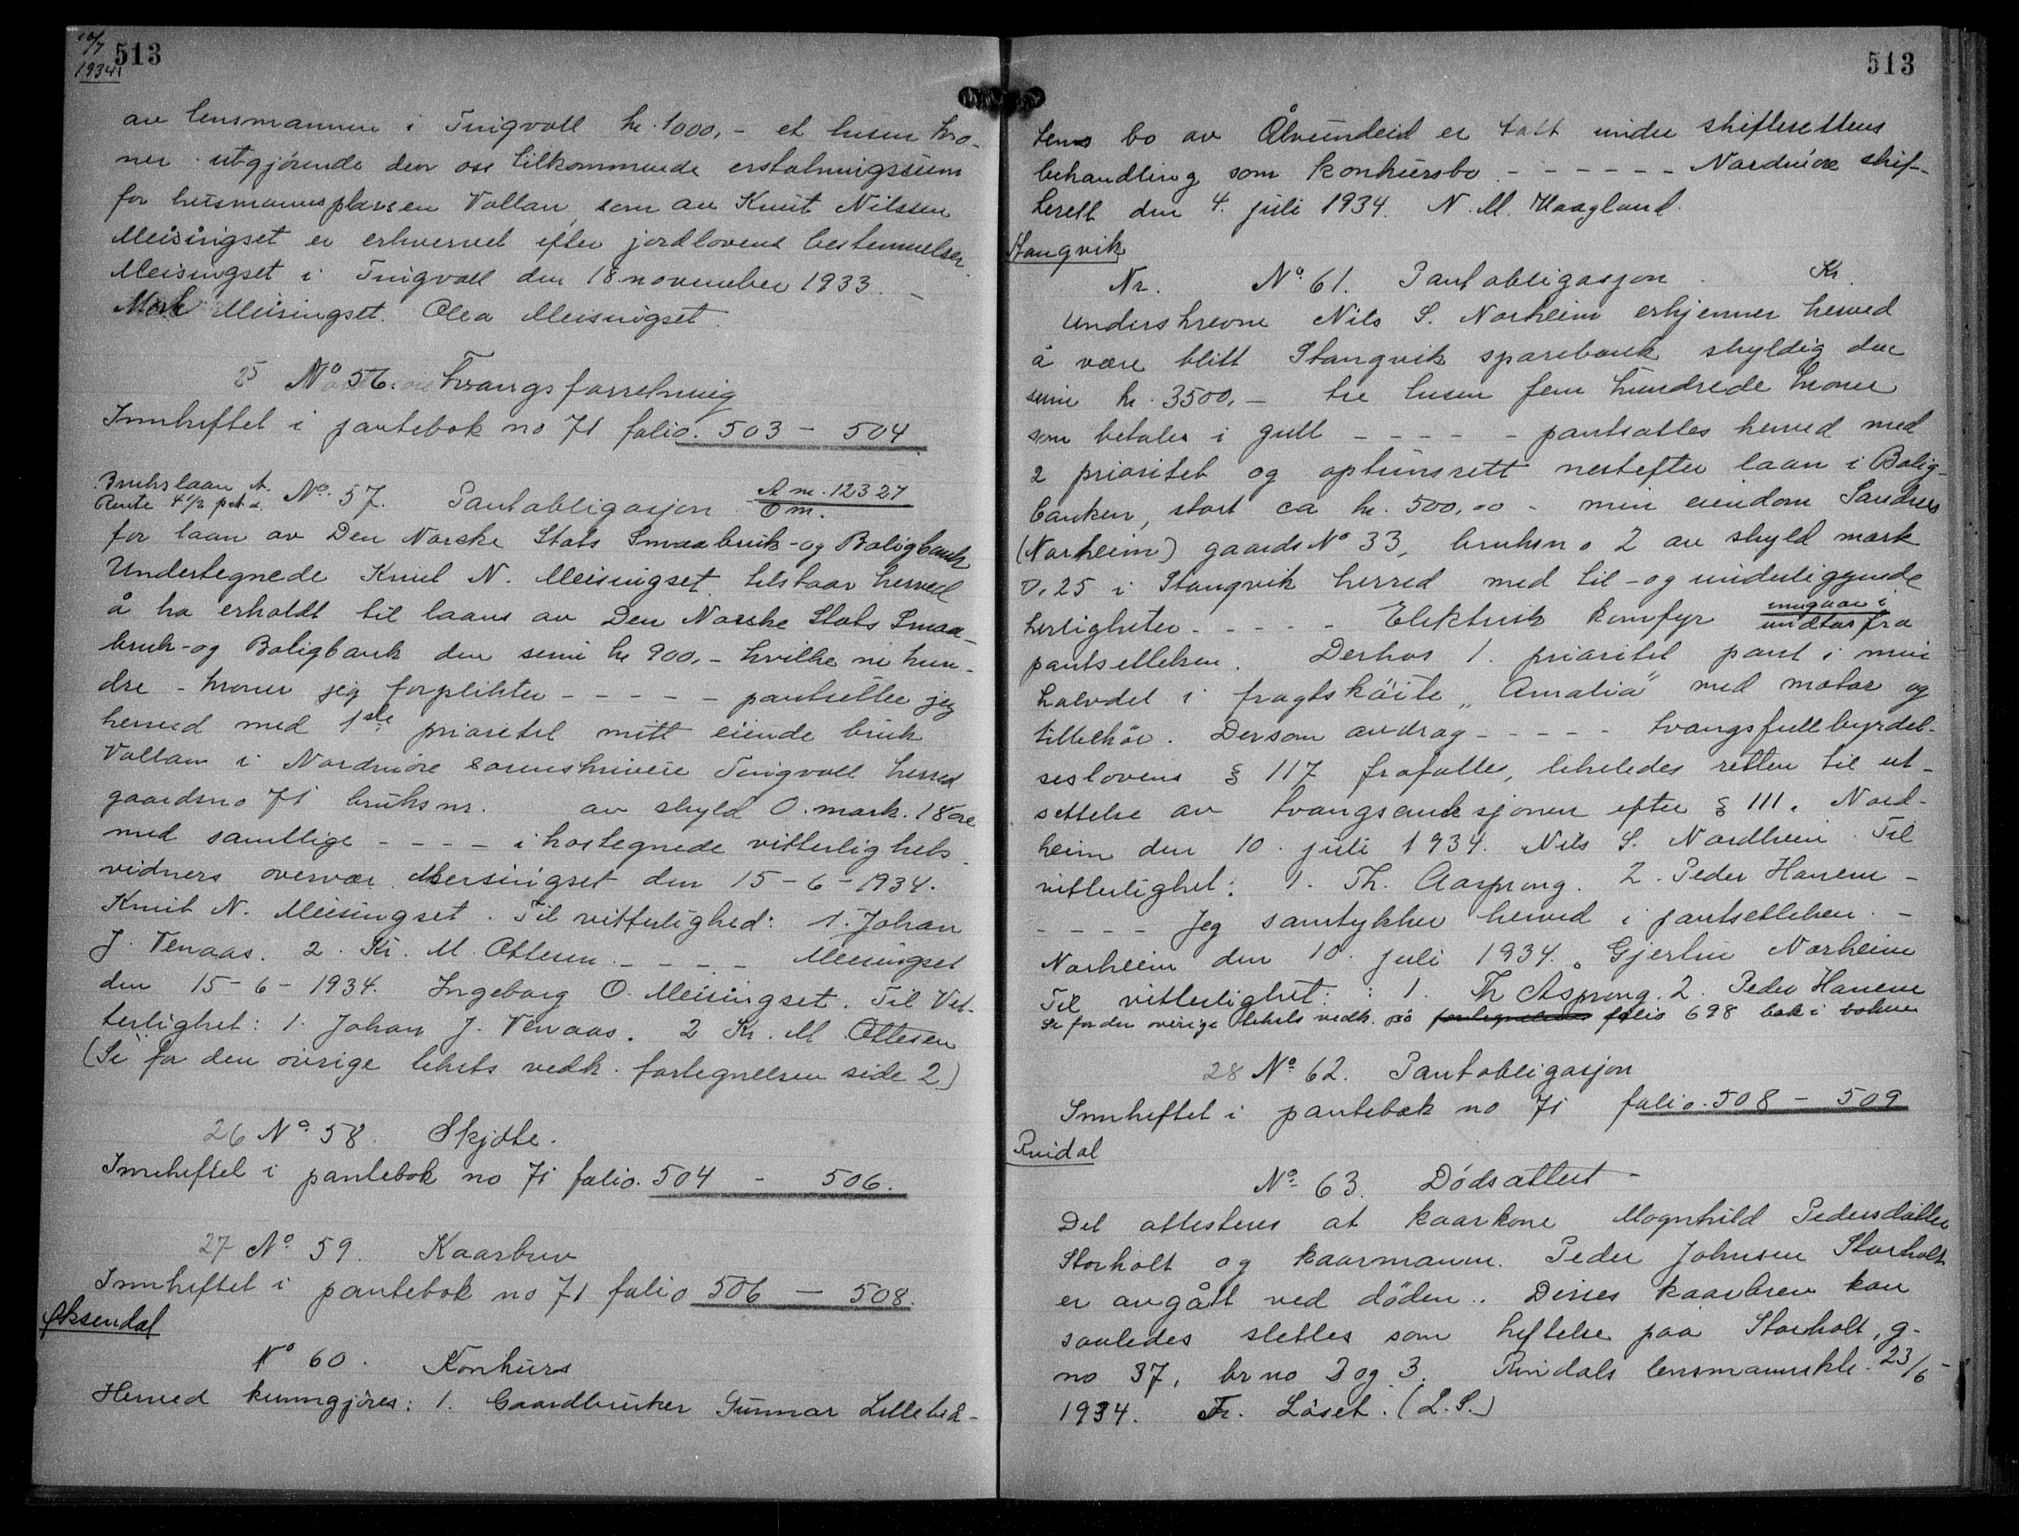 10/7 1934
513
av lensmannen i Tingvoll kr. 1000,- et tusen kro-
ner utgjørende den oss tilkommende erstatningssum
for husmannsplassen Vollan, som av Knut Nilssen
Meisingset er erhvervet efter jordlovens bestemmelser.
Meisingset i Tingvoll den 18 november 1933. -
Meisingset. Olea Meisingset.
25 No 56. Tvangsforretning
Innheftet i pantebok no 71 folio. 503 - 504
Brukslaan A.
Rente 4 1/2 pct. No. 57. Pantobligasjon A nr. 12327
for laan av Den Norske Stats Smaabruk- og Boligbank
Undertegnede Knut N. Meisingset tilstaar herved
å ha erholdt til laans av Den Norske Stats Smaa-
bruk- og Boligbank den sum kr 900,- hvilke ni hun-
dre - kroner jeg forplikter - - - - - pantsetter jeg
herved med 1ste prioritet mitt eiende bruk
Vollan i Nordmøre sorenskriveri Tingvoll herred
gaardsno 71 bruksnr. av skyld 0. mark. 18 øre
med samtlige - - - - i hostegnede vitterlighets-
vidners overvær. Meisingset den 15-6-1934.
Knut N. Meisingset. Til vitterlighed: 1. Johan
J. Venaas. 2. Kr. M. Ottesen. - - - - Meisingset
den 15-6-1934. Ingeborg O. Meisingset. Til Vit-
terlighet: 1. Johan J. Venaas. 2 Kr. M. Ottesen
(Se for den øvrige tekst vedk. fortegnelsen side 2)
26 No. 58. Skjøte.
Innheftet i pantebok no 71 folio. 504 - 506.
27 No. 59. Kaarbrev
Innheftet i pantebok no 71 folio 506 - 508.
Øksendal
No 60. Konkurs
Herved kunngjøres: 1. Gaardbruker Gunnar Lillebø-
513
tens bo av Ålvundeid er tatt under skifterettens
behandling som konkursbo. - - - - - - Nordmøre skif-
terett den 4. juli 1934. N. M. Haagland.
Stangvik
Nr. No. 61. Pantobligasjon. Kr.
Underskrevne Nils S. Norheim erkjenner herved
å være blitt Stangvik sparebank skyldig den
sum kr. 3500,- tre tusen fem hundrede kroner
som betales i gull - - - - - pantsattes herved med
2 prioritet og optrinsrett nestefter laan i Bolig-
banken, stort ca kr. 500,00 - min eiendom Sandnes
(Norheim) gaards No 33, bruksno 2 av skyld mark
0.25 i Stangvik herred med til- og underliggende
herligheter - - - - - Elektrisk komfyr inngaar i
undtas fra
pantsettelsen. Derhos 1. prioritet pant i min
halvdel i fragtskøite "Amalia" med motor og
tilbehør. Dersom avdrag - - - - - tvangsfullbyrdel-
seslovens § 117 frafalles, likeledes retten til ut-
settelse av tvangsauksjonen efter § 111. Nord-
heim den 10. juli 1934. Nils S. Nordheim. Til
vitterlighet: 1. Th. Aasprong. 2. Peder Hanem -
- - - - Jeg samtykker herved i pantsettelsen. -
Norheim den 10. juli 1934. Gjertine Norheim
Til vitterlighet: 1. Th Asprong. 2. Peder Hanem
Se for den øvrige teksts vedk. fortegnelsen folio 698 bak i boken
28 No 62. Pantobligasjon
Innheftet i pantebok no 71 folio. 508 - 509
Rindal
No. 63. Dødsattest -
Det attesteres at kaarkone Magnhild Pedersdatter
Storholt og kaarmann Peder Johnsen Storholt
er avgått ved døden. Disses kaarbrev kan
saaledes slettes som heftelse paa Storholt, g-
no 37, br no 2 og 3. Rindals lensmannskt. 23/6-
1934. Fr. Løset. (L.S.)